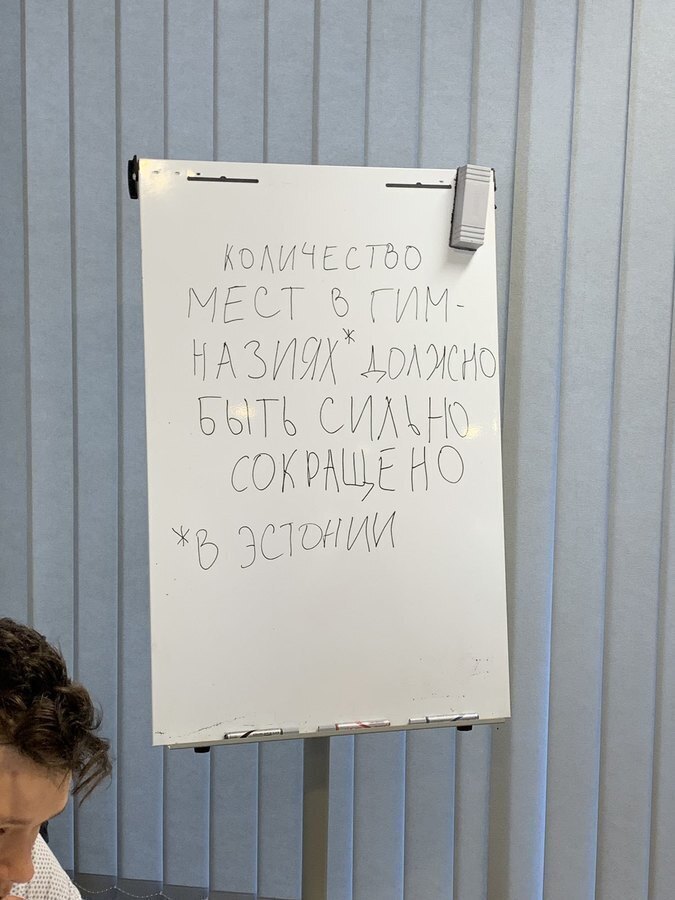 КОЛИЧЕСТВО
МЕСТ В ГИМ-
НАЗИЯХ* ДОЛЖНО
БЫТЬ СИЛЬНО
СОКРАЩЕНО
*В ЭСТОНИИ